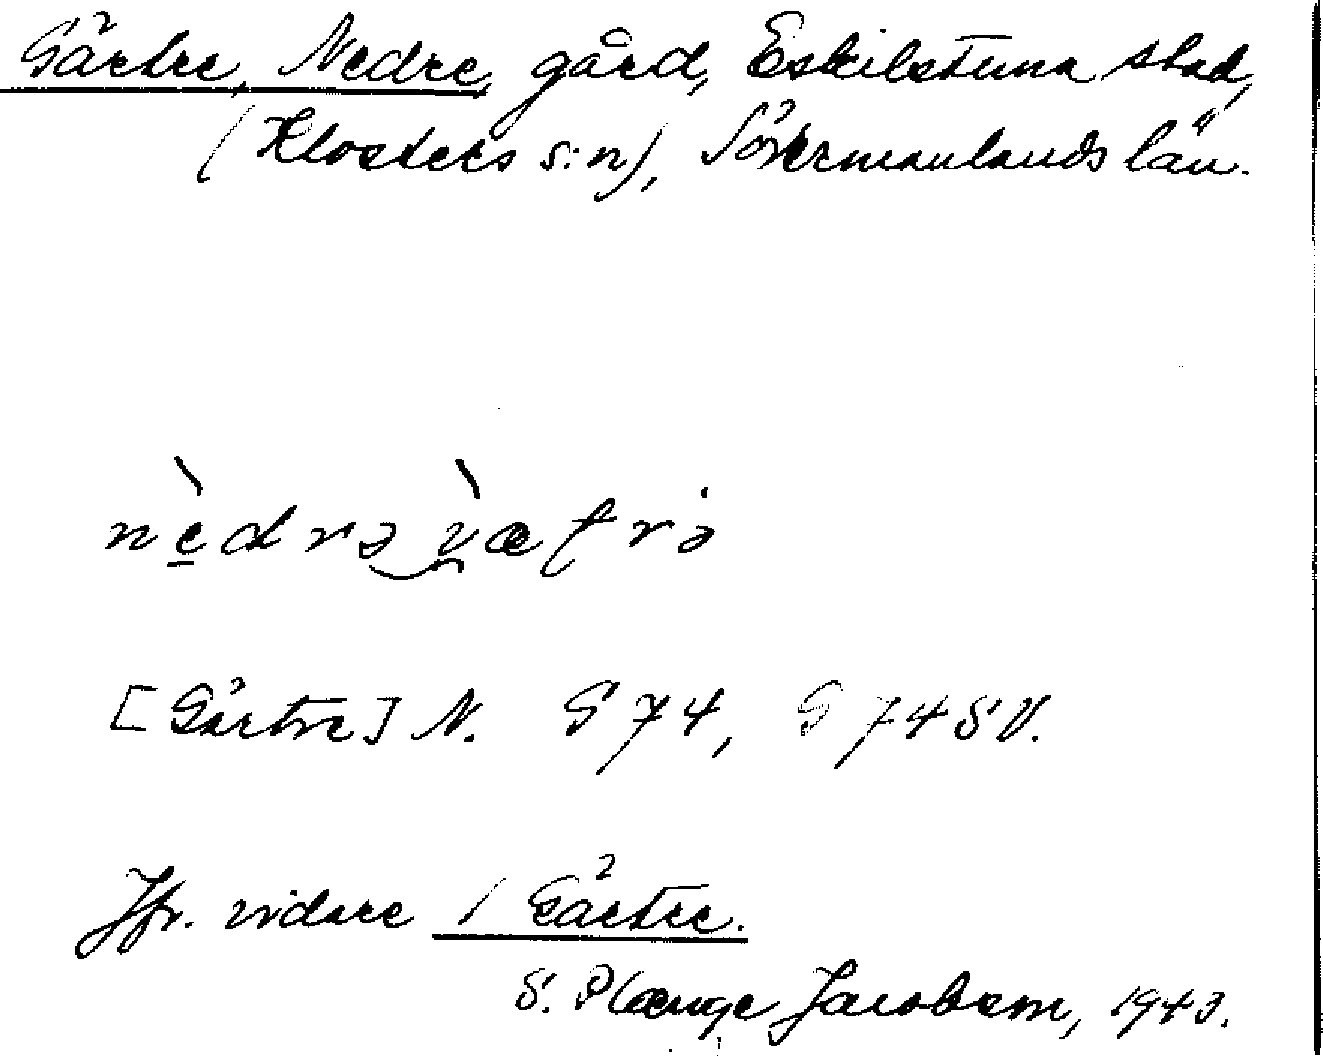 Gärtre, Nedre, gård, Eskilstuna stad,
(Klosters s:n), Södermanlands län.
nèdrə v̀æʈrə
[Gärtre] N. G 74, G 74 SV.
Jfr. vidare / Gärtre.
S. Plænge Jacobson, 1943.